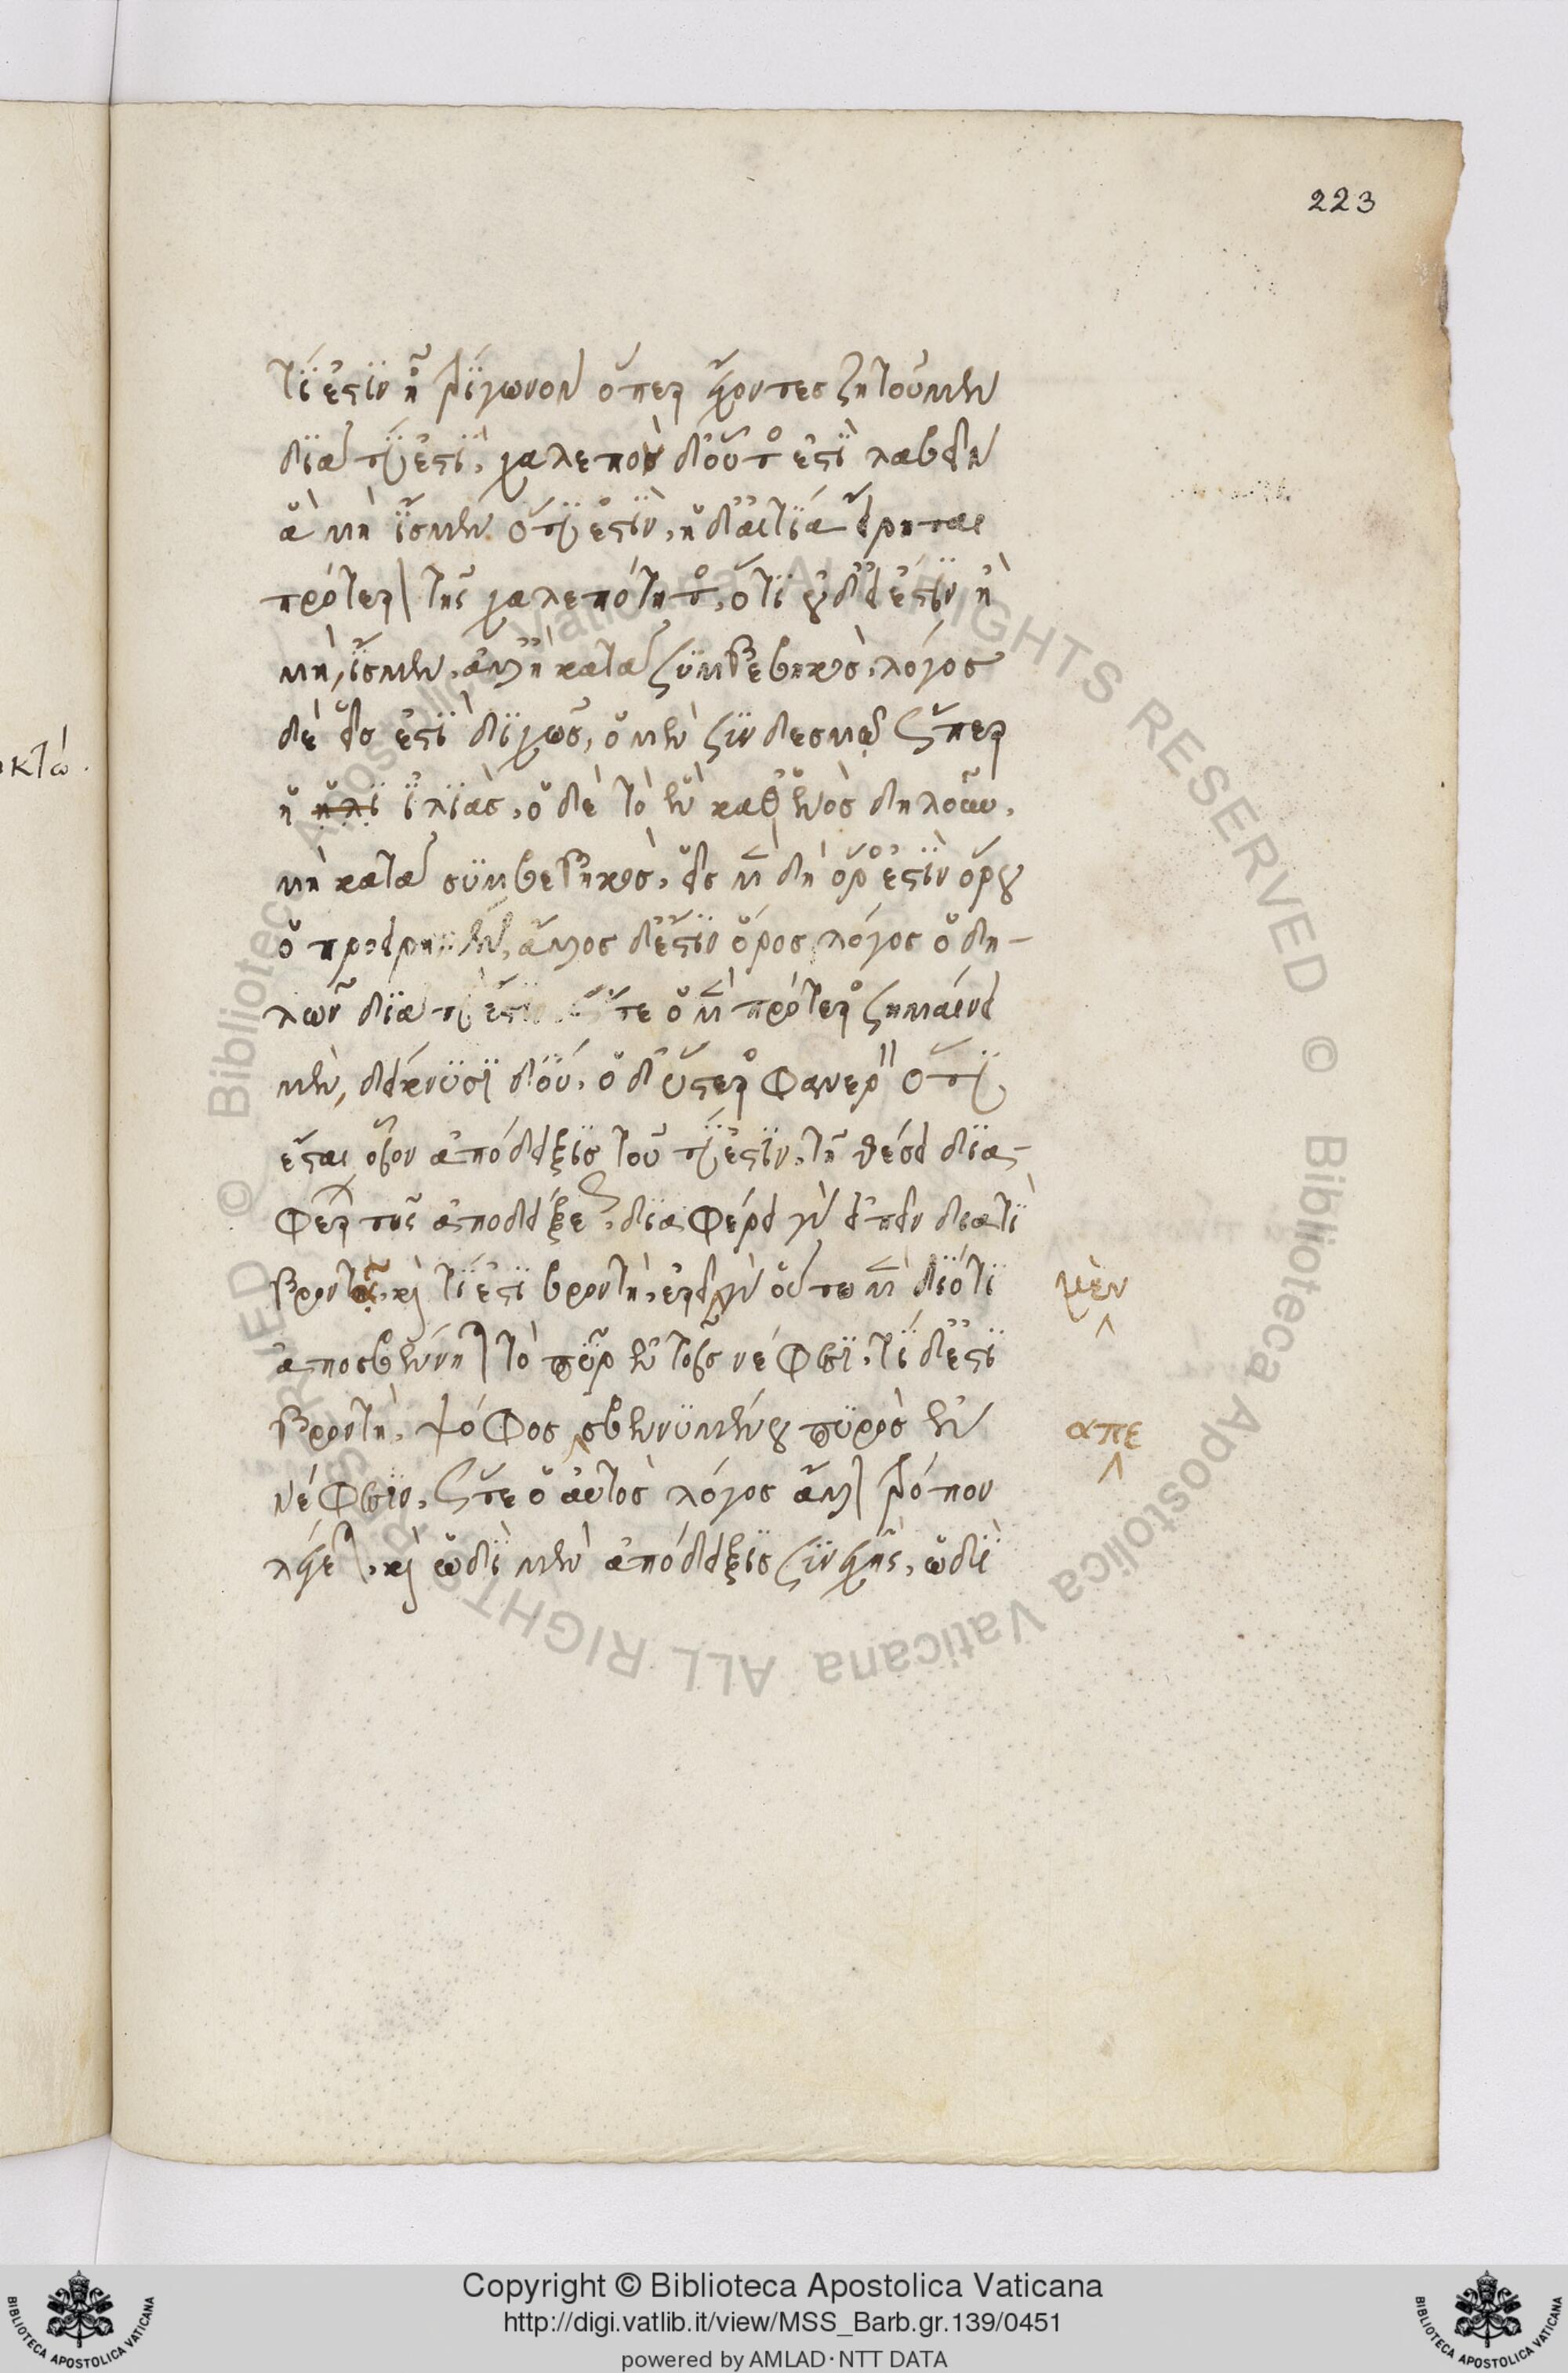 223
τί ἐστιν ἢ τρίγωνον ὅπερ ἔχοντες ζητοῦμεν
διὰ τί ἐστι, χαλεπὸν δ' οὕτως ἐστὶ λαβεῖν
ἃ μὴ ἴσμεν ὅτι ἐστὶν, ἡ δ' αἰτία εἴρηται
πρότερον τῆς χαλεπότητος, ὅτι οὐδ' εἰ ἔστιν ἢ
μὴ, ἴσμεν, ἀλλ' ἢ κατὰ συμβεβηκὸς, λόγος
δὲ εἷς ἐστὶ διχῶς, ὁ μὲν συνδέσμῳ ὥσπερ
ἡ ἠλι ἰλιὰς, ὁ δὲ τὸ ἓν καθ' ἑνὸς δηλοῦν,
μὴ κατὰ συμβεβηκὸς, εἷς μὲν δὴ ὅρος ἐστὶν ὅρου
ὁ προειρημένος, ἄλλος δ' ἐστὶν ὅρος λόγος ὁ δη-
λῶν διὰ τί ἐστιν ὥστε ὁ μὲν πρότερος σημαίνει
μὲν, δείκνυσι δ' οὔ, ὁ δ' ὕστερος φανερὸν ὅτι
ἔσται οἷον ἀπόδειξις τοῦ τί ἐστιν, τῇ θέσει δια-
φέρων τῆς ἀποδείξεως, διαφέρει γὰρ εἰπεῖν διατὶ
βροντᾷ, καὶ τί ἐστι βροντὴ, ἐρεῖ γὰρ οὕτω μὲν διότι
μὲν
ἀποσβέννυται τὸ πῦρ ἐν τοῖς νέφεσι, τί δ' ἐστὶ
βροντὴ, ψόφος σβεννυμένου πυρὸς ἐν
απε
νέφεσιν, ὥστε ὁ αὐτὸς λόγος ἄλλον τρόπον
λέγεται, καὶ ὡδὶ μὲν ἀπόδειξις συνεχὴς, ὡδὶ
κτώ.
Copyright © Biblioteca Apostolica Vaticana
http://digi.vatlib.it/view/MSS_Barb.gr.139/0451
powered by AMLAD·NTT DATA
BIBLIOTECA APOSTOLICA VATICANA
BIBLIOTECA APOSTOLICA VATICANA
© Biblioteca Apostolica Vaticana ALL RIGHTS RESERVED
© Biblioteca Apostolica Vaticana ALL RIGHTS RESERVED